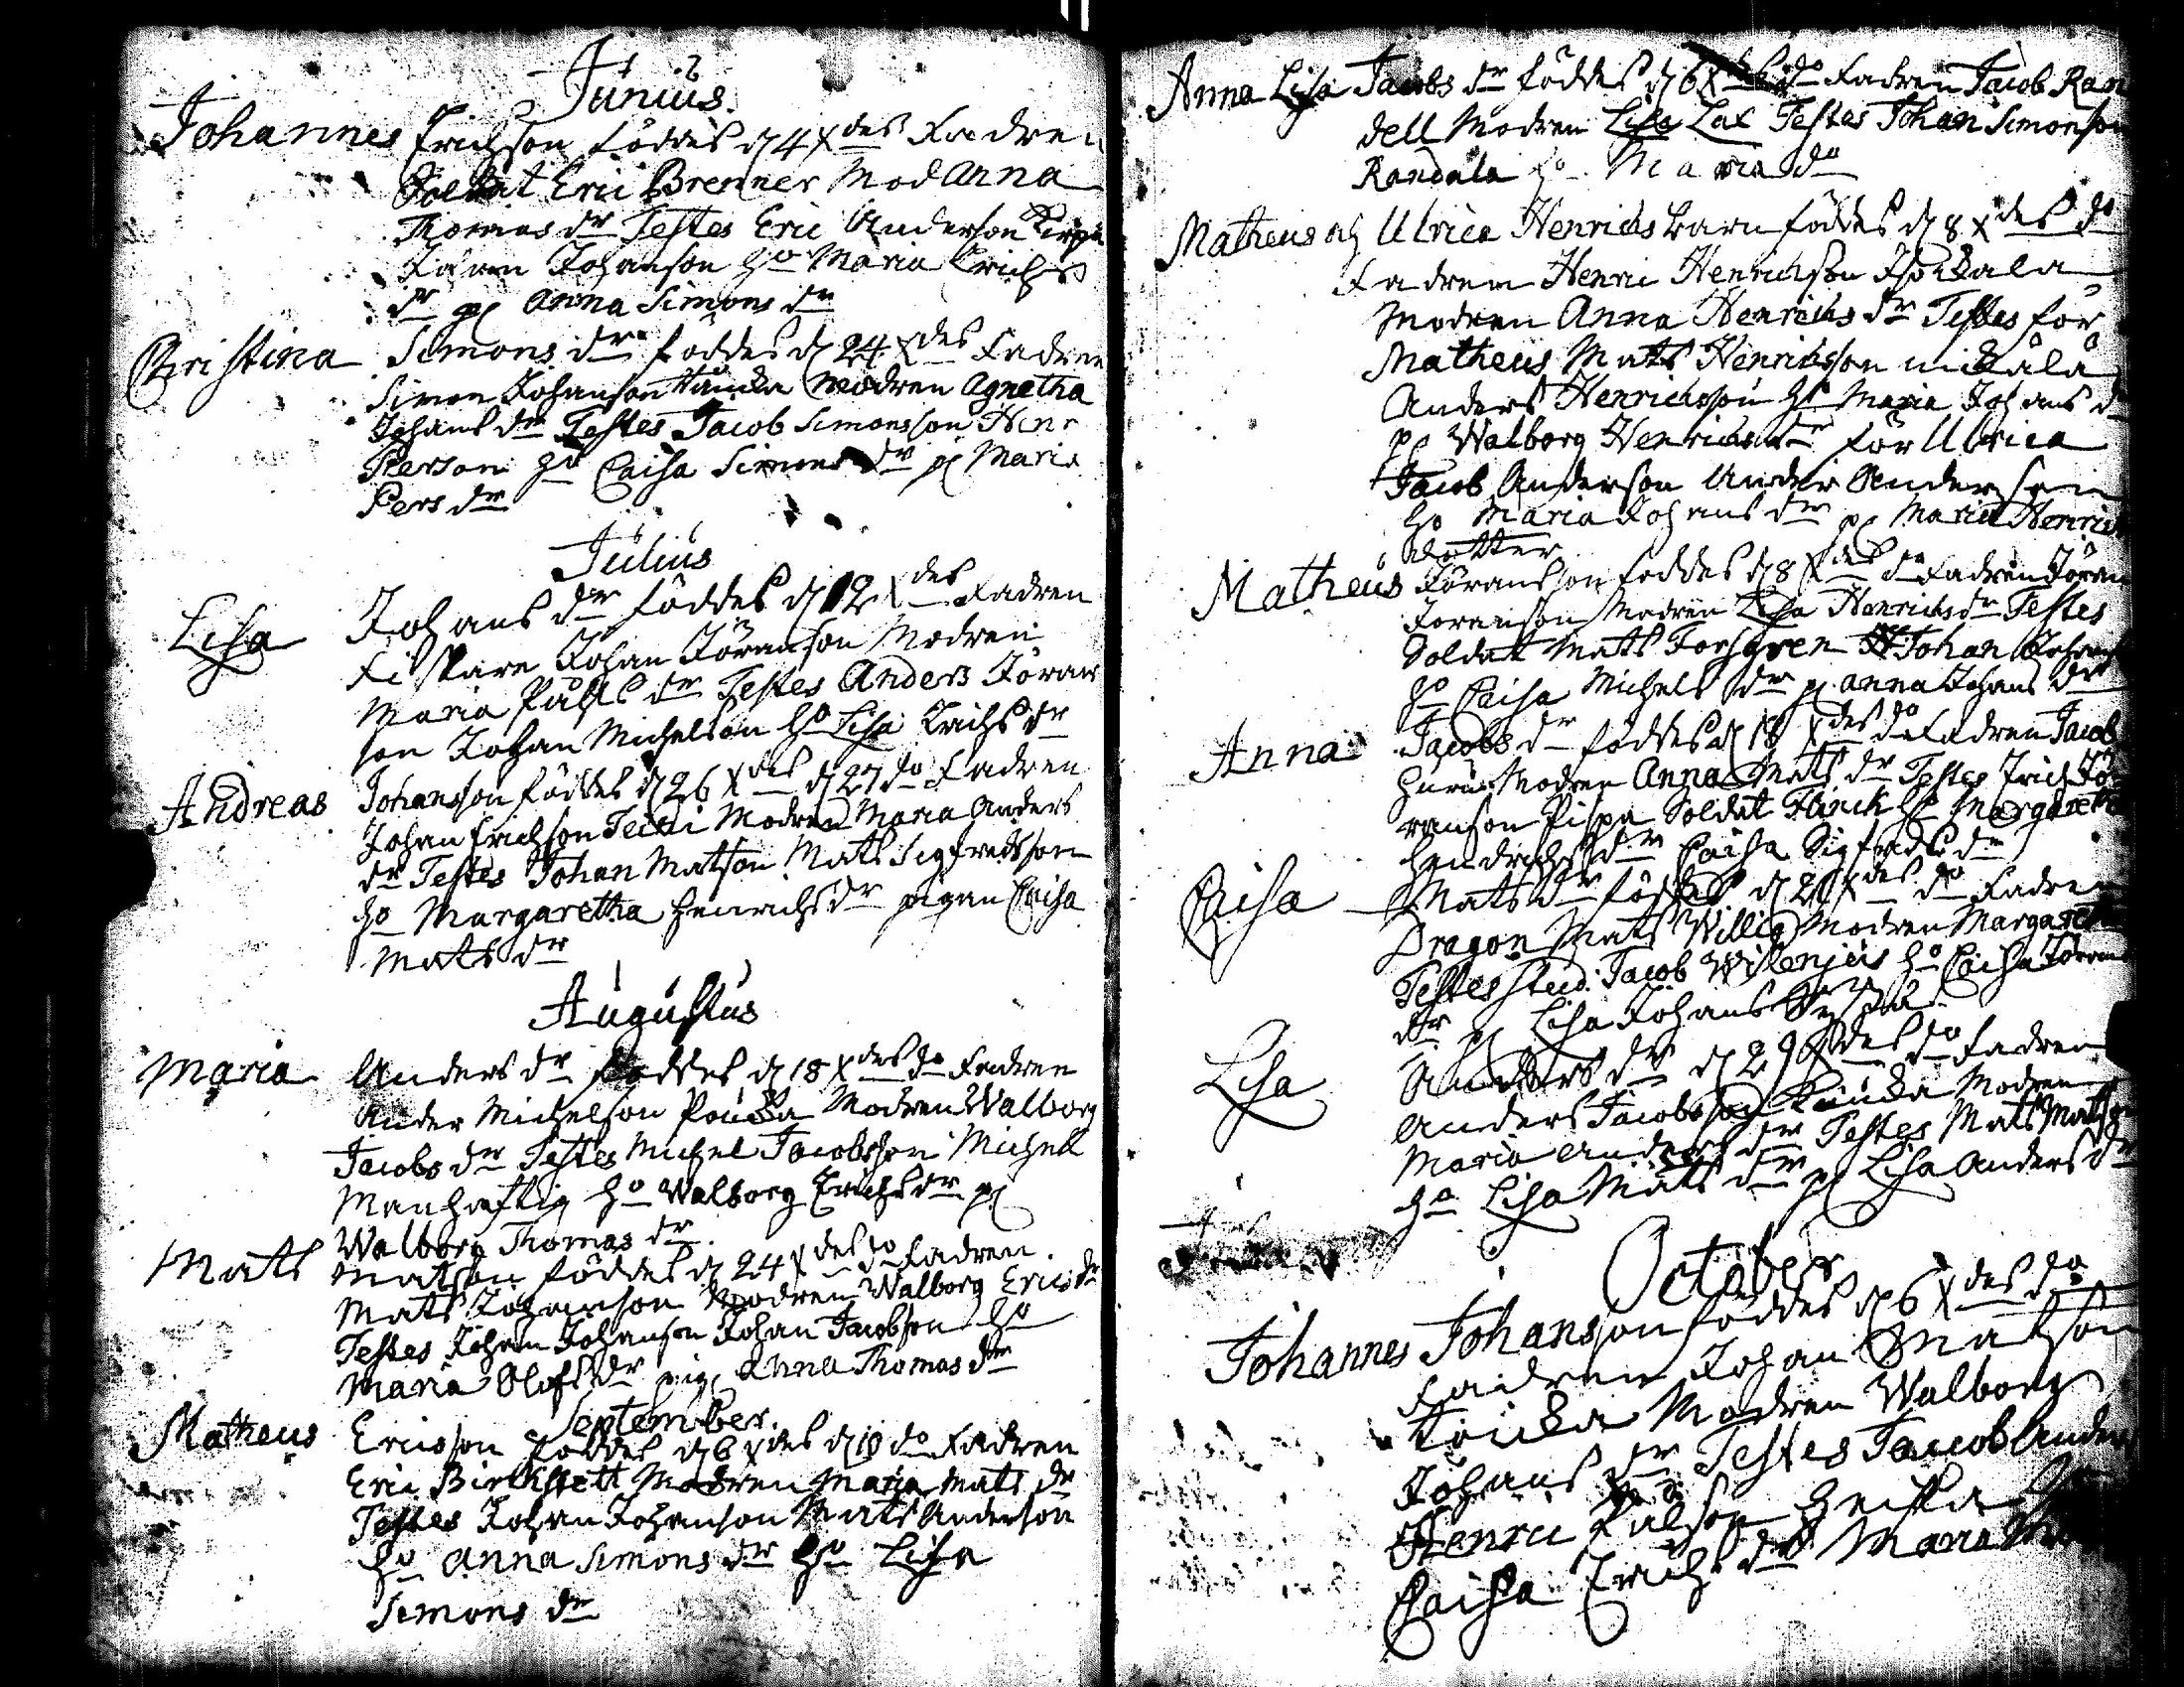 Junius.
Johannes Erichson föddes d 4 Xdes Fadren
Soldat Eric Brenner Mod Anna
Thomas dr Testes Eric Anderson
Jöran Johanson ho Maria Erichs
dr pi Anna Simons dr
Christina Simons dr föddes d 24 Xdes Fadren
Simon Johanson Modren Agnetha
Johans dr Testes Jacob Simonsson Henr
Person ho Caisa Simons dr pi Maria
Pers dr
Julius
Lisa Johans dr föddes d 12 Xdes Fadren
Fiskare Johan Jöranson Modren
Maria Påhls dr Testes Anders Jöran
son Johan Michelson ho Lisa Erichs dr
Andreas Johansson föddes d 26 Xdes d 27 do Fadren
Johan Erichson Modren Maria Anders
dr Testes Johan Matson Mats Sigfredsson
ho Margaretha Henrichs dr pigan Caisa
Mats dr
Augustus
Maria Anders dr föddes d 18 Xdes do Fadren
Ander Michelson Poucka Modren Walborg
Jacobs dr Testes Michel Jacobsson Michel
Manhaftig ho Walborg Erichs dr pi
Walborg Thomas dr.
Mats Matson föddes d 24 Xdes do Fadren.
Mats Johanson Modren Walborg Erics dr
Testes Johan Johanson Johan Jacobson ho
Maria Olofs dr pig Anna Thomas dr
September.
Matheus Ericsson föddes d 6 Xdes d 10 do Fadren
Eric Birckstett Modren Maria Mats dr
Testes Johan Johanson Mats Anderson
ho Anna Simons dr ho Lisa
Simons dr
Anna Lisa Jacobs dr föddes d 6 X do Fadren Jacob Ran
dell Modren Lisa Lax Testes Johan Simonson
Randala ho Maria do
Matheus och Ulrica Henrichs barn föddes d 8 Xdes do
Fadren Henric Henrichson
Modren Anna Henrichs dr Testes för
Matheus Mats Henrichsson
Anders Henrichsson ho Maria Johans dr
pi Walborg Henrichs dr för Ulrica
Jacob Anderson Ander Anderson
ho Maria Johans dr pi Maria Henrich
dotter
Matheus Jöransson föddes d 8 Xdes do Fadren Jöran
Jöranson Modren Lisa Henrichs dr Testes
Soldat Mats Forsgren Johan Johans
ho Caisa Michels dr pi Anna Johans dr
Anna Jacobs dr föddes d 18 Xdes do Fadren Jacob
Modren Anna Mats dr Testes Erich Jö
ranson Pispa Soldat Flinck ho Margareta
Hendrichs dr Caisa Sigfreds dr
Caisa Mats dr föddes d 21 Xdes do Fadren
Dragon Mats Willig Modren Margareta
Testes Stud: Jacob Wikenjeus ho Caisa Jöran
dr pi Lisa Johans
Lisa Anders dr d 29 Xdes do Fadren
Anders Jacobsson Modren
Maria Anders dr Testes Mats Matson
ho Lisa Mats dr pi Lisa Anders dr
October
Johannes Johansson föddes d 6 Xdes do
Fadren Johan Matson
Modren Walborg
Johans dr Testes Jacob Anders
Henric Pålson
Caisa Erichs dr Maria